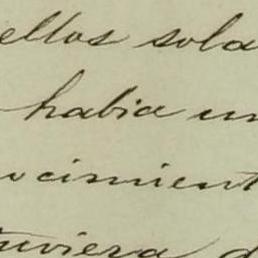 ellos sola
habia un
ocimient
uviera d